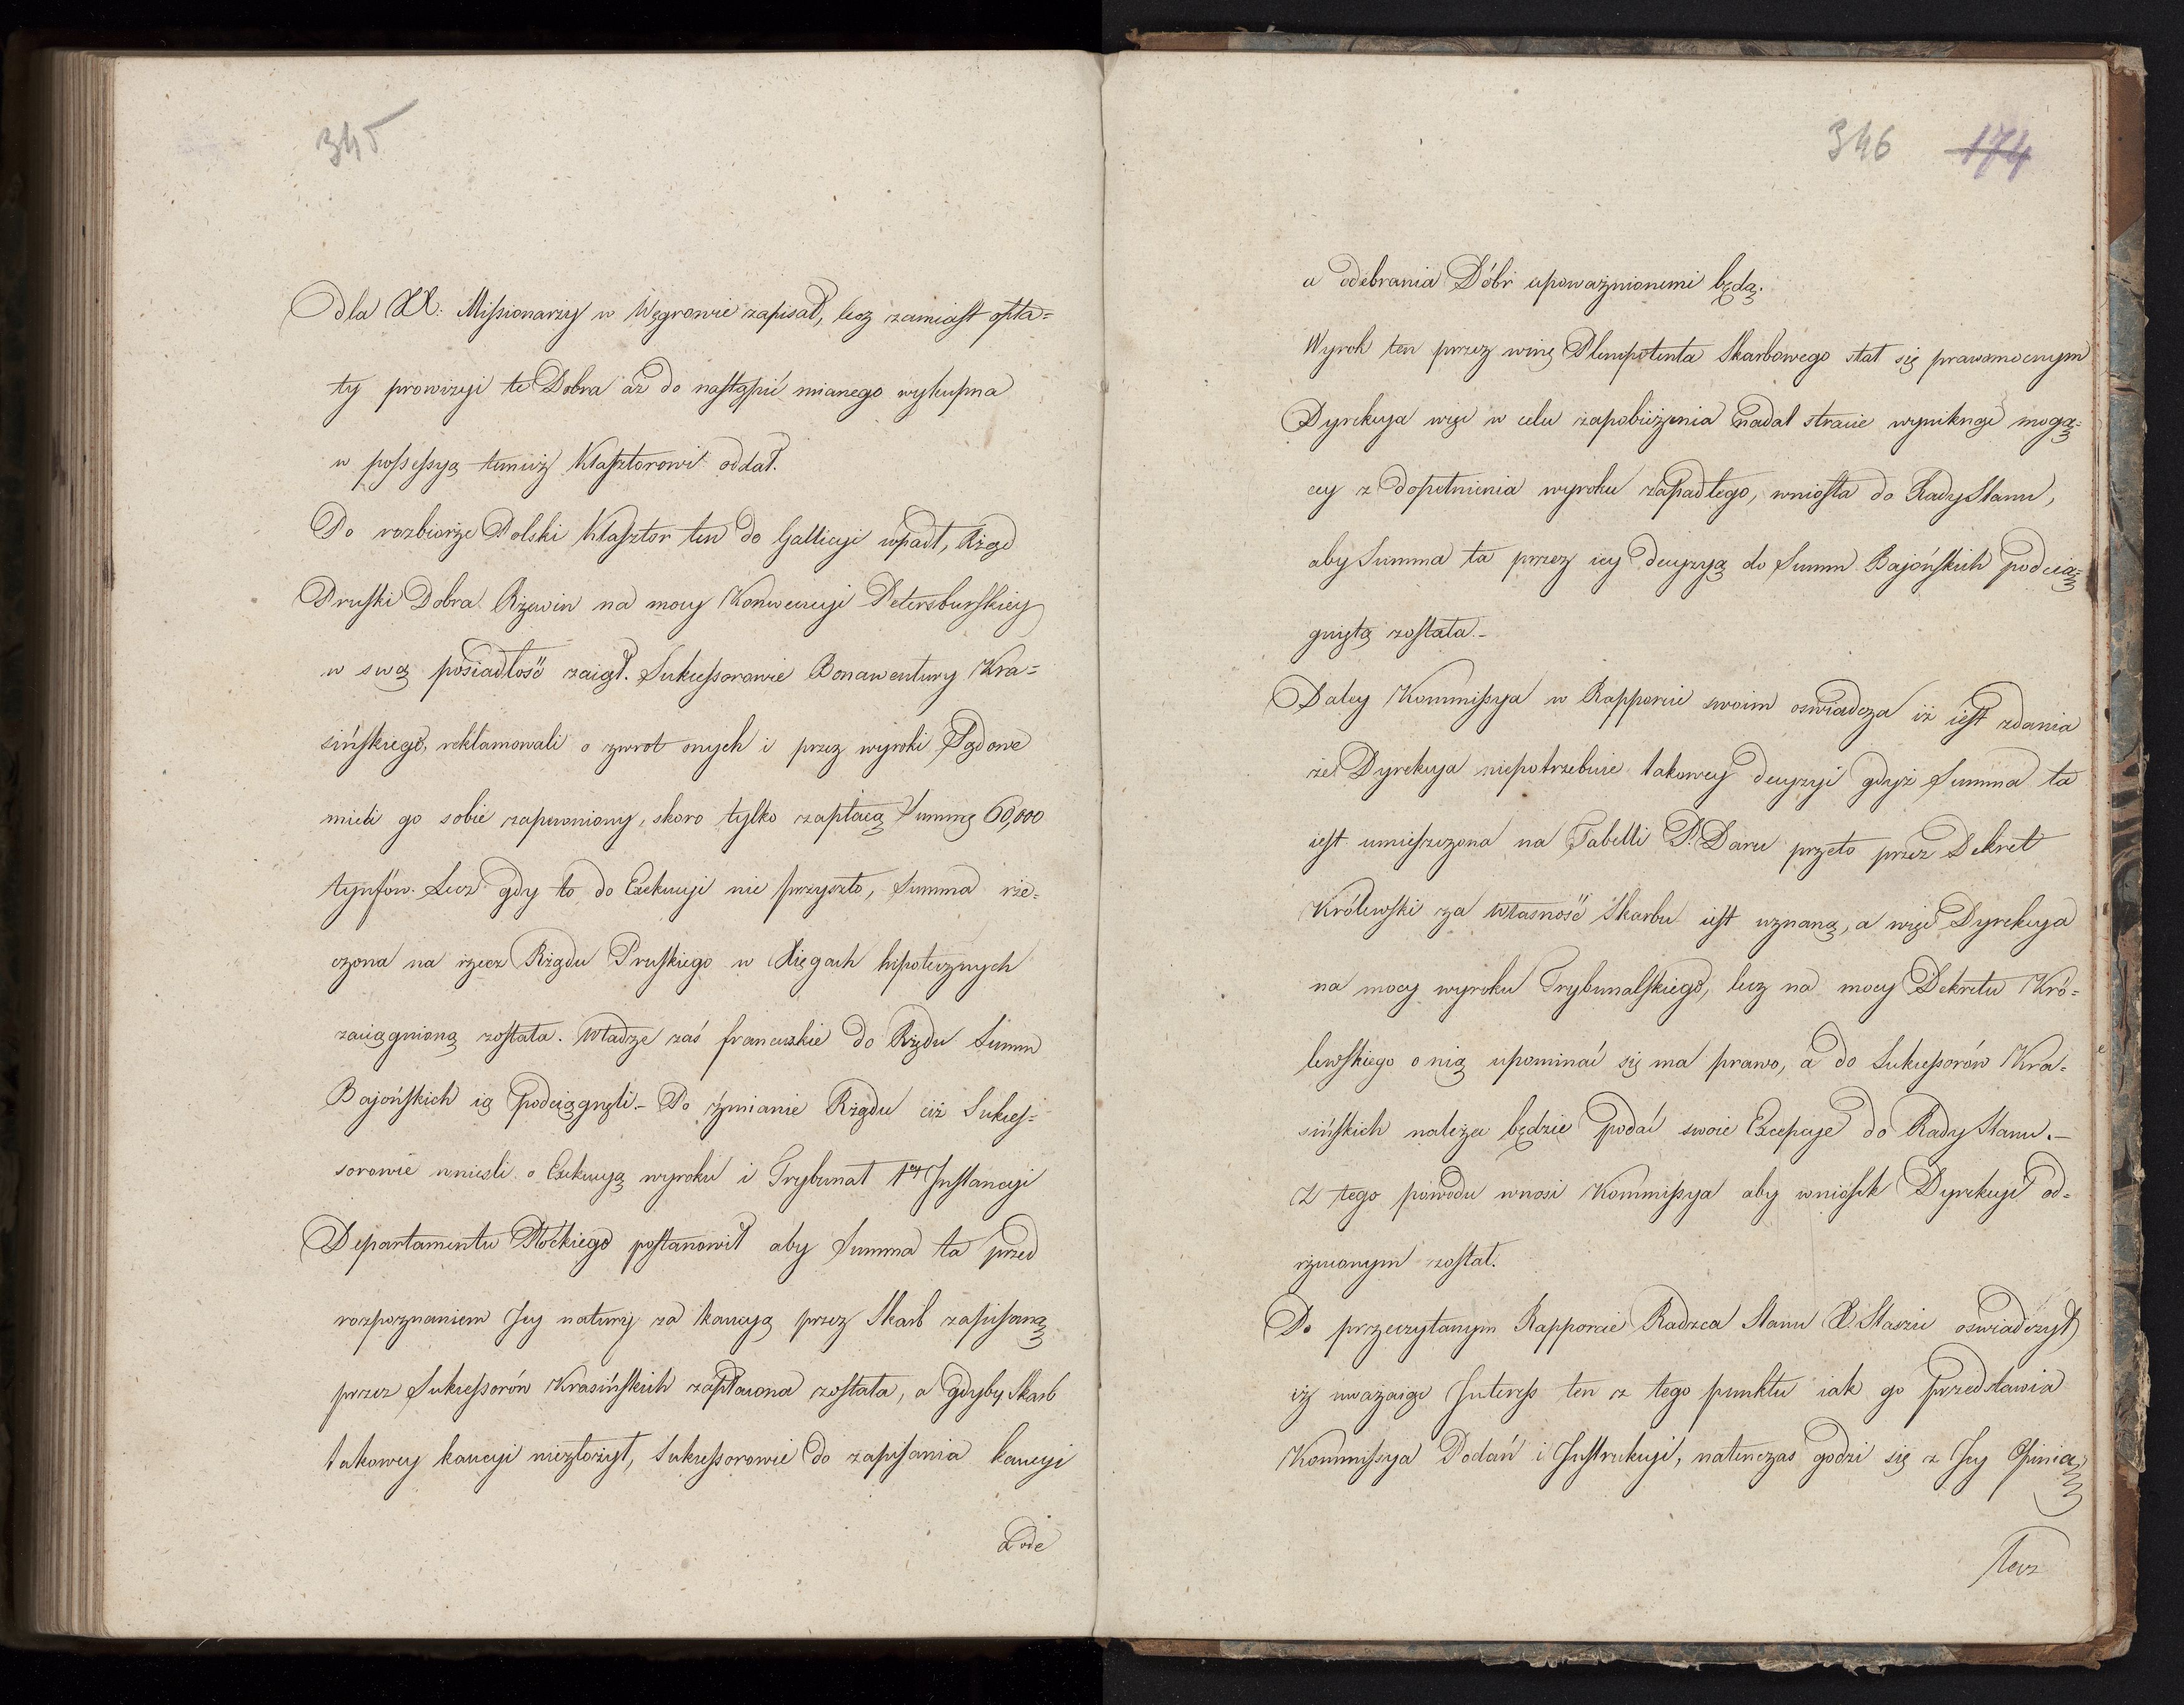 345
dla XX: Missionarzy w Węgrowie zapisał, lecz zamiast opła=
ty prowizyi te Dobra aż do nastąpić mianego wykupna
w possessyą temuż Klasztorowi oddał.
Po rozbiorze Polski Klasztor ten do Gallicyi wpadł, Rząd
Pruski Dobra Rżewin na mocy Konwencyi Petersburskiey
w swą posiadłość zaiął. Sukcessorowie Bonawentury Kra=
sińskiego, reklamowali o zwrot onych i przez wyroki Sądowe
mieli go sobie zapewniony, skoro tylko zapłacą Summę 60,000
tynfów. Lecz gdy to do Exekucyi nie przyszło, Summa rze=
czona na rzecz Rządu Pruskiego w Xięgach hipotecznych
zaciągnioną została. Władze zaś francuskie do Rzędu Summ
Bajońskich ią podciągnęli.- Po zmianie Rządu ciż Sukces=
sorowie wnieśli o Exekucyą wyroku i Trybunał 1ey Instancyi
Departamentu Płockiego postanowił aby Summa ta przed
rozpoznaniem Jey natury za kaucyą przez Skarb zapisaną
przez Sukcessorów Krasińskich zapłacona została, a gdyby Skarb
takowey kaucyi niezłożył, Sukcessorowie do zapisania kaucyi
a ode
346 174
a odebrania Dóbr upoważnionemi będą.
Wyrok ten przez winę Plenipotenta Skarbowego stał się prawomocnym
Dyrekcya więc w celu zapobieżenia nadal stracie wyniknąć mogą=
cey z dopełnienia wyroku zapadłego, wniosła do Rady Stanu,
aby Summa ta przez iey decyzyą do Summ Bajońskich podcią=
gniętą została.-
Daley Kommissya w Rapporcie swoim oswiadcza iż iest zdania
że Dyrekcya niepotrzebuie takowey decyzyi gdyż Summa ta
iest umieszczona na Tabelli P. Daru przeto przez Dekret
Królewski za własność Skarbu iest uznaną, a więc Dyrekcya
na mocy wyroku Trybunalskiego, lecz na mocy Dekretu Kró=
lewskiego o nią upominać się ma prawo, a do Sukcessorów Kra=
sińskich należeć będzie podać swoie Excepcye do Rady Stanu.-
Z tego powodu wnosi Kommissya aby wniosek Dyrekcyi od=
rzuconym został.
Po przeczytanym Rapporcie Radzca Stanu X. Staszic oswiadczył
iż uważaiąc Interess ten z tego punktu iak go przedstawia
Kommissya Podań i Instrukcyi, natenczas godzi się z Jey Opinią
lecz